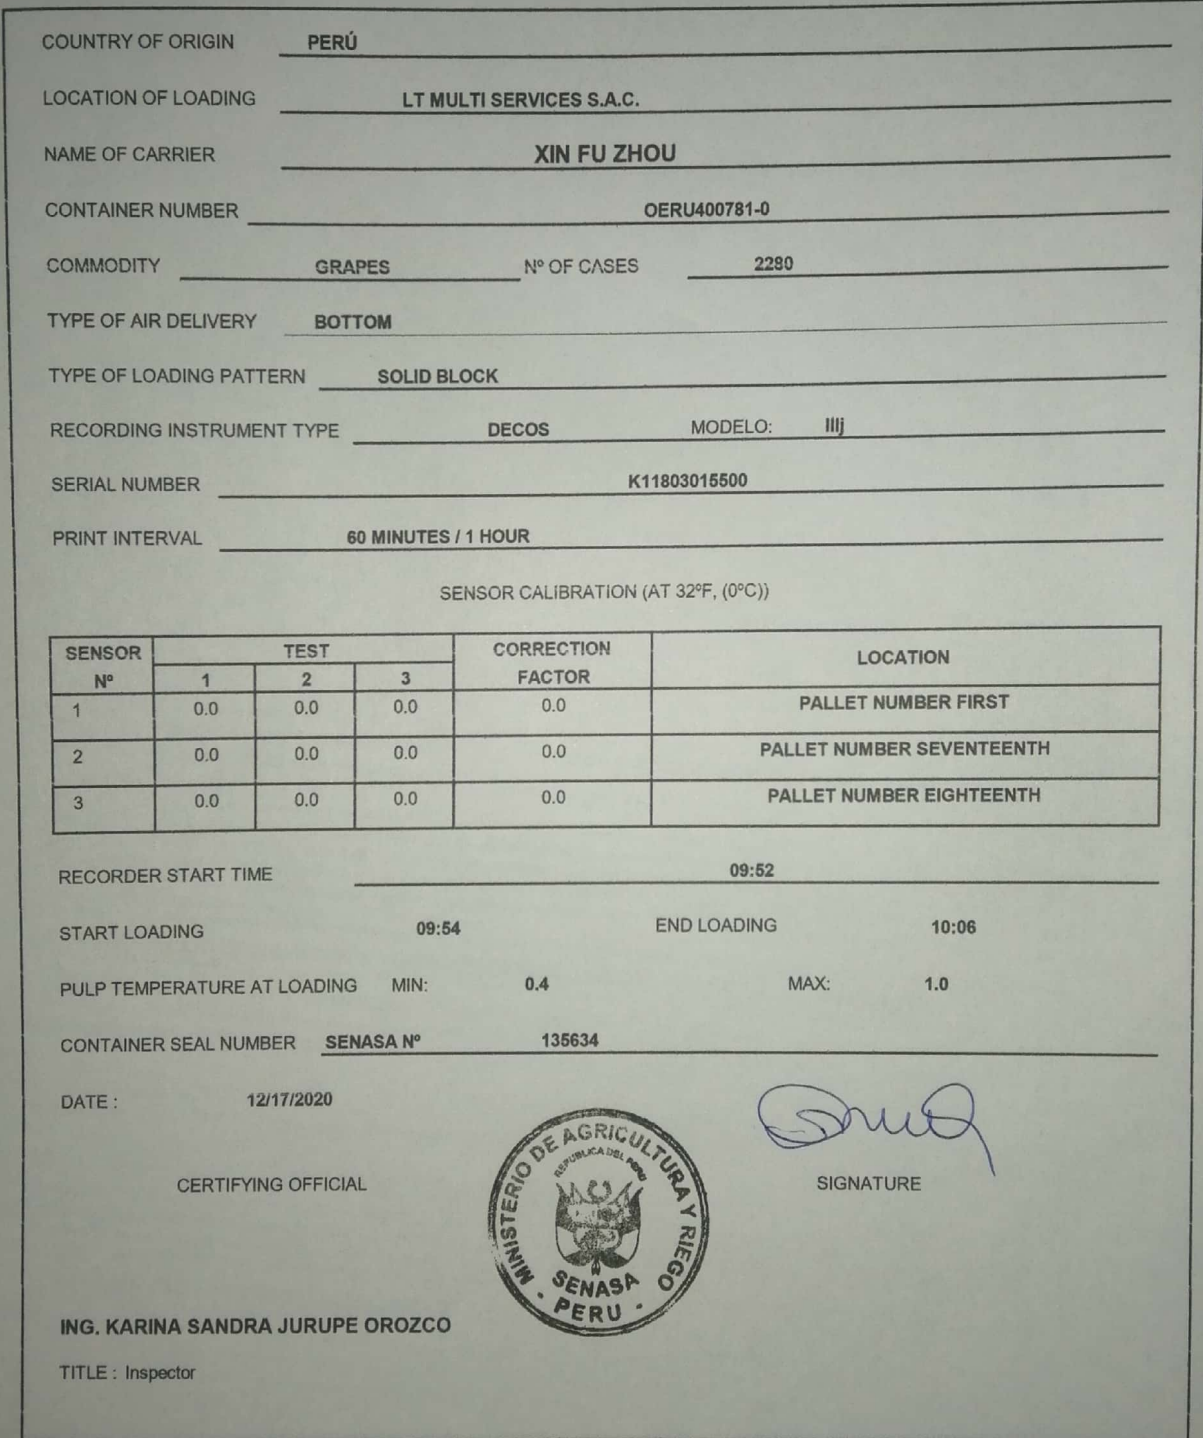 COUNTRY OF ORIGIN PERÚ
LOCATION OF LOADING LT MULTI SERVICES S.A.C.
NAME OF CARRIER XIN FU ZHOU
CONTAINER NUMBER OERU400781-0
COMMODITY GRAPES Nº OF CASES 2280
TYPE OF AIR DELIVERY BOTTOM
TYPE OF LOADING PATTERN SOLID BLOCK
RECORDING INSTRUMENT TYPE DECOS MODELO: IIIj
SERIAL NUMBER K11803015500
PRINT INTERVAL 60 MINUTES / 1 HOUR
SENSOR CALIBRATION (AT 32ºF, (0ºC))
SENSOR Nº TEST CORRECTION FACTOR LOCATION
1 2 3
1 0.0 0.0 0.0 0.0 PALLET NUMBER FIRST
2 0.0 0.0 0.0 0.0 PALLET NUMBER SEVENTEENTH
3 0.0 0.0 0.0 0.0 PALLET NUMBER EIGHTEENTH
RECORDER START TIME 09:52
START LOADING 09:54 END LOADING 10:06
PULP TEMPERATURE AT LOADING MIN: 0.4 MAX: 1.0
CONTAINER SEAL NUMBER SENASA Nº 135634
DATE : 12/17/2020
CERTIFYING OFFICIAL SIGNATURE
MINISTERIO DE AGRICULTURA Y RIEGO
REPUBLICA DEL PERU
SENASA
- PERU -
ING. KARINA SANDRA JURUPE OROZCO
TITLE : Inspector